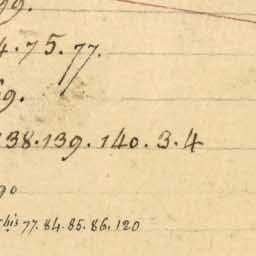 99.
4.75.77.
69.
138.139.140.3.4
90
bis 77.84.85.86.120